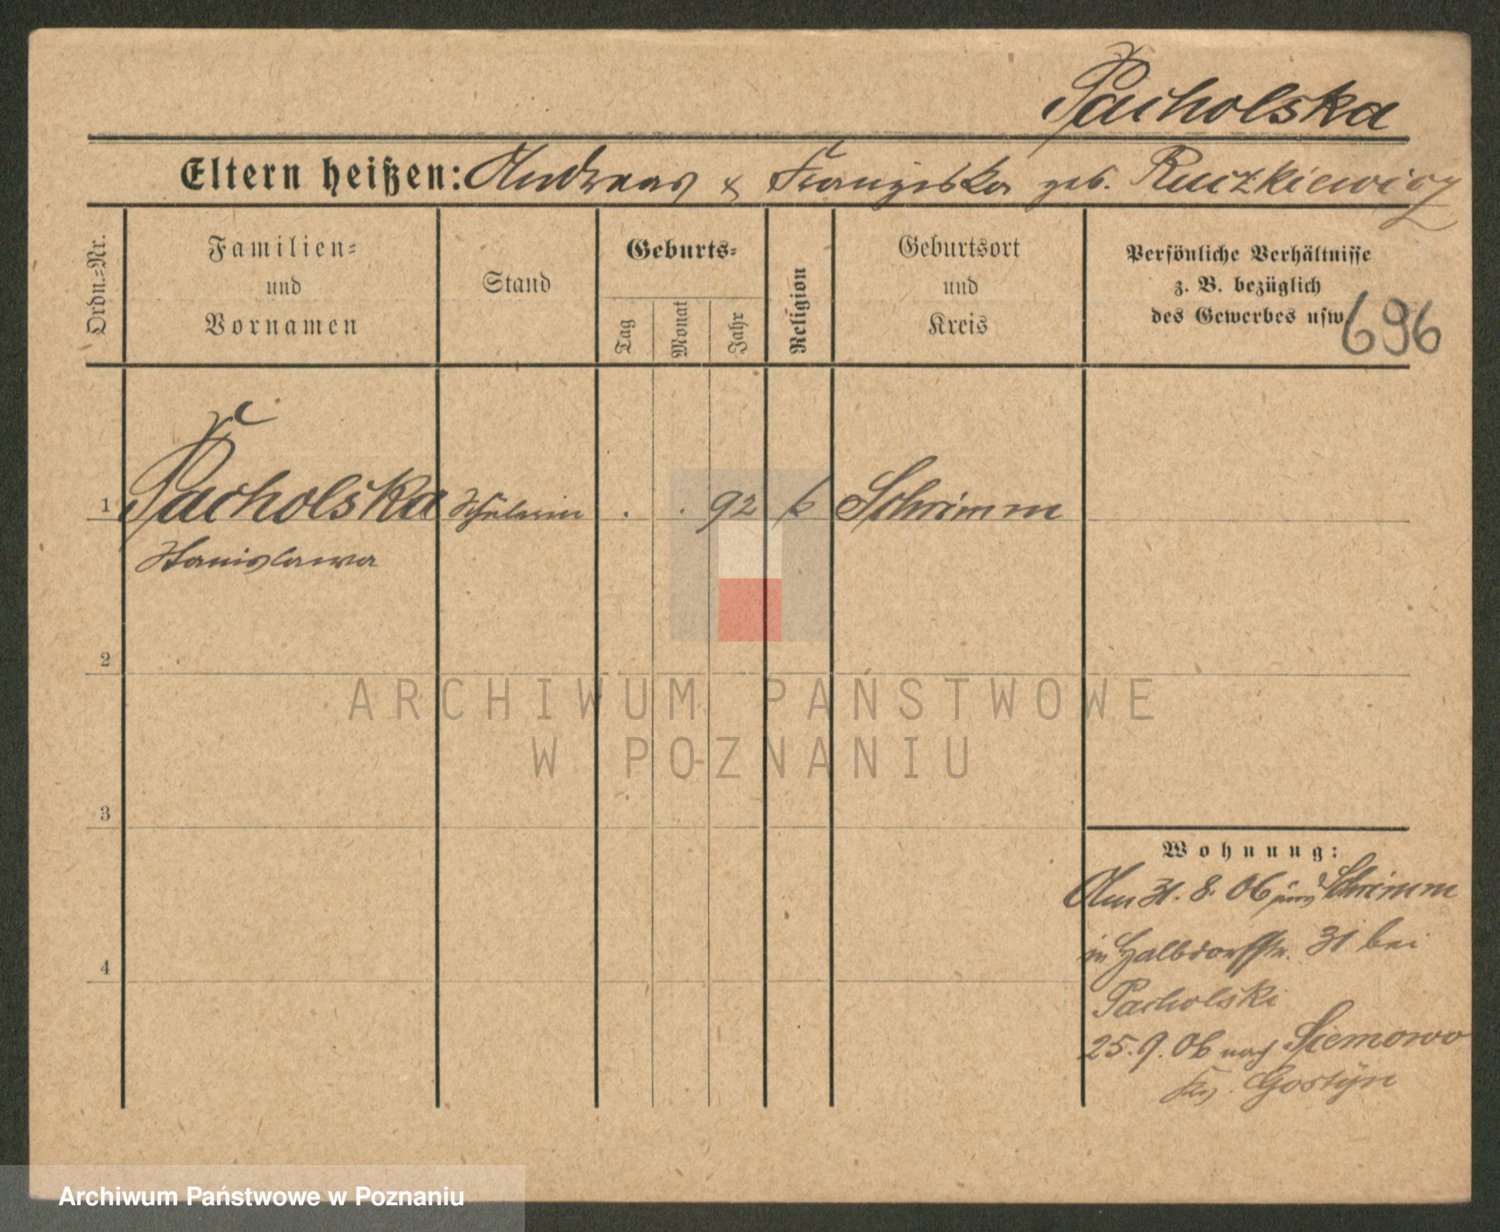 Pacholska
Eltern heißen: Andreas & Franziska geb. Ruczkiewicz
Ordn.=Nr.
Familien=
und
Vornamen
Stand
Geburts=
Tag
Monat
Jahr
Religion
Geburtsort
und
Kreis
Persönliche Verhältnisse
z. B. bezüglich
des Gewerbes usw
696
1 Pacholska Schülerin . . 92 k Schrimm
Stanislawa
2
ARCHIWUM PAŃSTWOWE
W POZNANIU
3
Wohnung:
Am 31. 8. 06 aus Schrimm
in Halbdorfstr. 31 bei
4
Pacholski
25. 9. 06 nach Siemowo
Krs. Gostyn
Archiwum Państwowe w Poznaniu